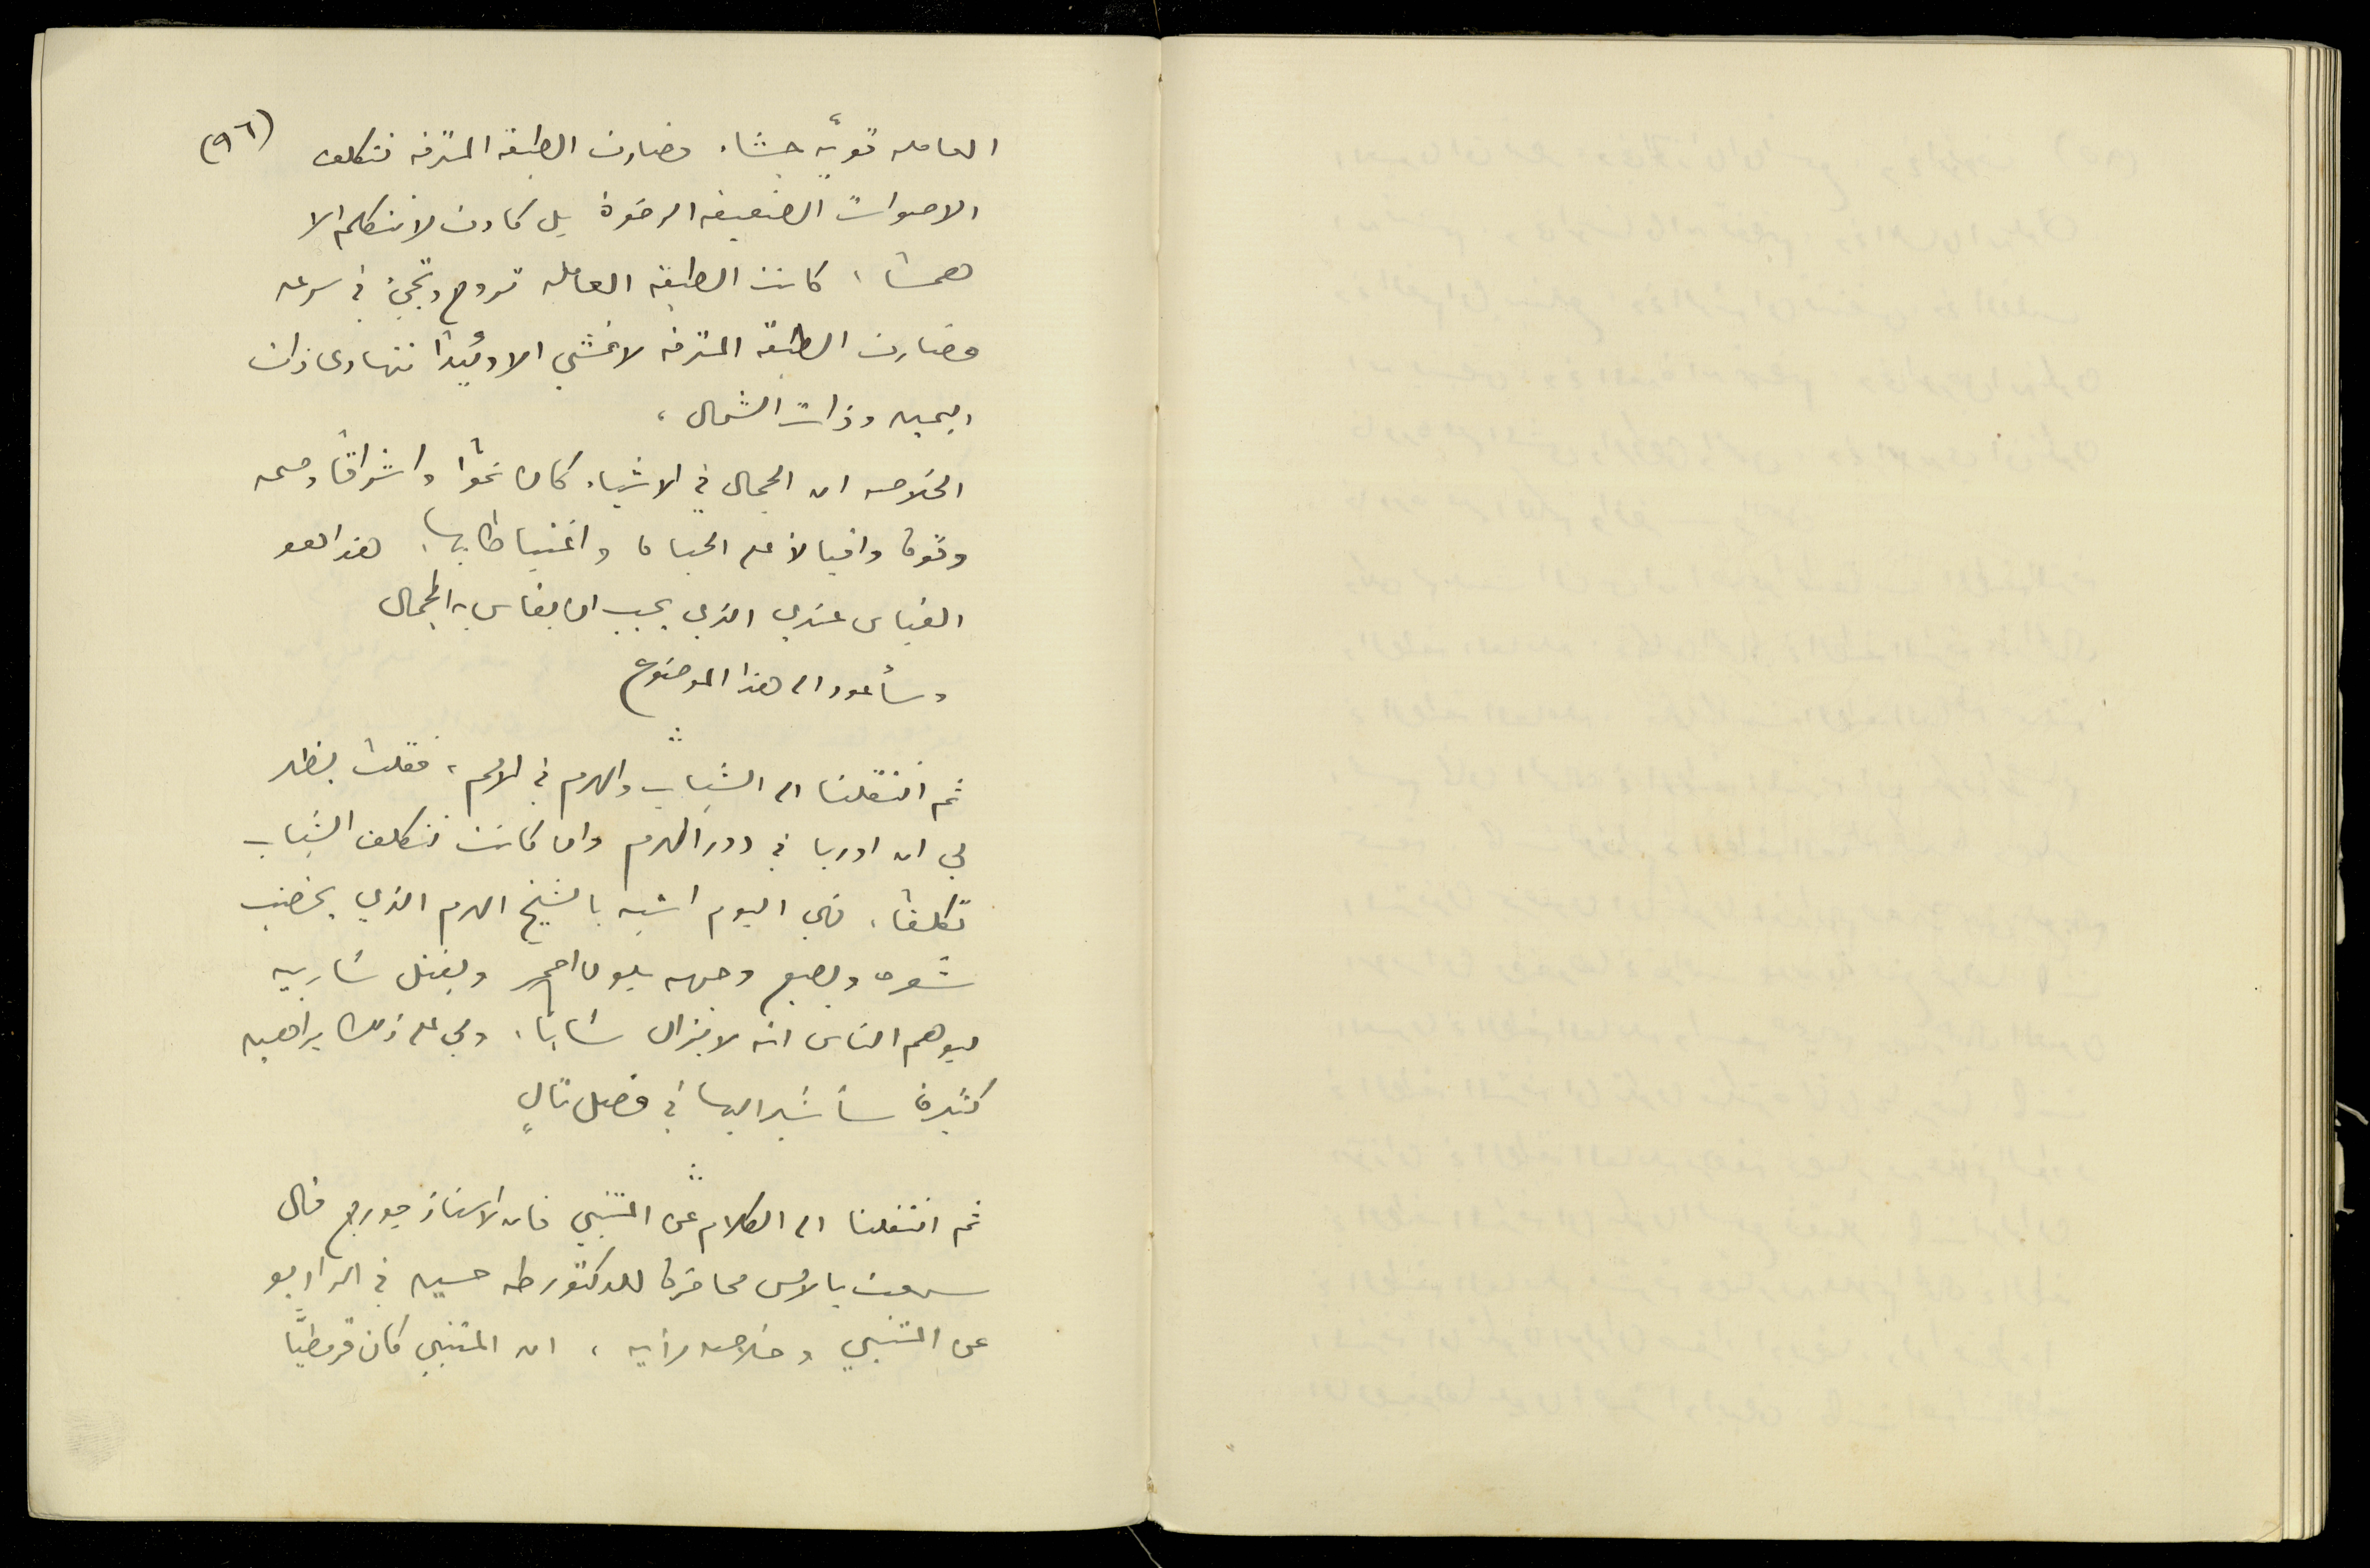 (٩٦)
العامله قويّه جشاء فصارت الطبقه المترفه تتكلف
الاصوات الضعيفه الرخوة بل كادت لا تتكلم الا
همسًا، كانت الطبقه العامله تروح وتجيء في سرعه
فصارت الطبقه المترفه لا تمشي الا وئيدًا تتهادى ذات
اليمين وذات الشمال،
الخلاصه ان الجمال في الاشياء كان نموًا واشراقًا وصحه
وقوة واقبالا على الحياة واغتباطا بها، هذا هو
القياس عندي الذي يجب ان يقاس به الجمال
وسأعود الى هذا الموضوع
ثم انتقلنا الى الشباب والهرم في الامم، فقلت يظهر
لي ان اوربا في دور الهرم وان كانت تتكلف الشباب
تكلفًا، فهي اليوم اشبه بالشيخ الهرم الذي يخضب
شعره ويصبغ وجهه بلون احمر ويفتل شاربيه
ليوهم الناس انه لا يزال شابًا، ولي على ذلك براهين
كثيرة سأشير اليها في فصل تالٍ
ثم انتقلنا الى الكلام عن المتنبي فان الاستاذ جورج قال
سمعت بالامس محاضرة للدكتور طه حسين في الراديو
عن المتنبي وخلاصه رأيه، ان المتنبي كان قرمطيًّا